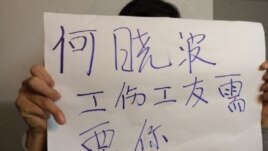 何晓波
工伤工友需
要你